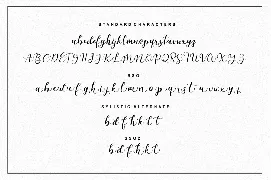 STANDARD CHARACTERS
abcdefghijklmnopqrstuvwxyz
ABCDEFGHIJKLMNOPQRSTUVWXYZ
a b c d e f g h i j k l m n o p q r s t u v w x y z
STYLISTIC ALTERNATE
b d f h k l t
b d f h k l t